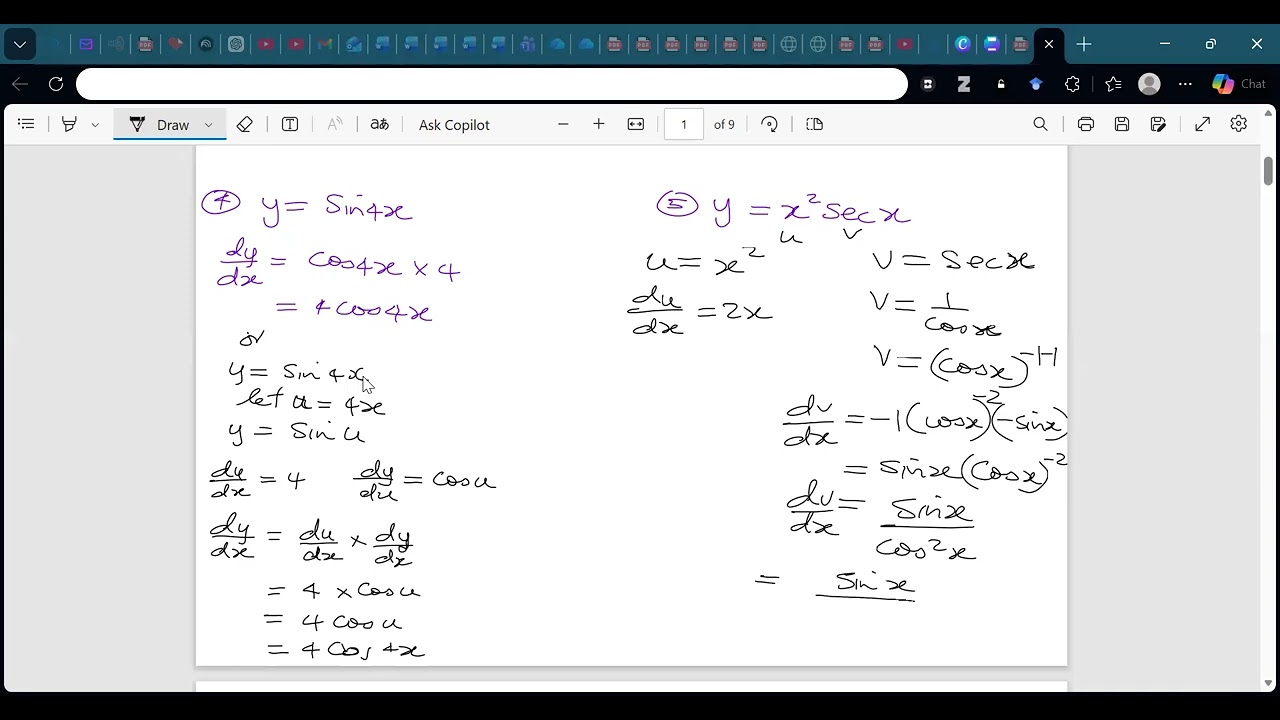 Chat
Draw
Ask Copilot
1 of 9
④ y = Sin4x
dy/dx = Cos4x × 4
= 4cos4x
or
y = Sin 4x
let u = 4x
y = Sin u
du/dx = 4 dy/du = cosu
dy/dx = du/dx × dy/dx
= 4 × cosu
= 4 cosu
= 4 Cos4x
⑤ y = x² secx
u v
u = x² v = secx
du/dx = 2x v = 1/cosx
v = (cosx)⁻¹
dv/dx = -1(cosx)⁻²(-sinx)
= sinx(cosx)⁻²
dv/dx = sinx/cos²x
= sinx